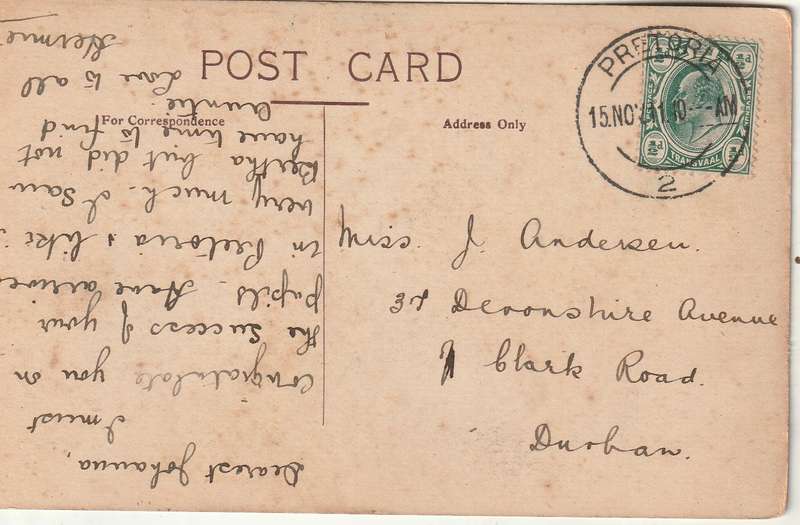 POST CARD
For Correspondence
Address Only
PRETORIA
15.NO
11.10 - AM
2
TRANSVAAL
Miss. J. Andersen.
Devonshire Avenue
Clark Road.
Durban.
Dearest Johanna,
I must
Congratulate you on
the success of your
pupils. Have arrived
in Pretoria & like it
very much. I saw
Bertha but did not
have time to find
Auntie.
Love to all